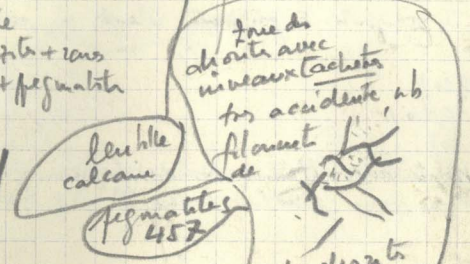 + pegmatite
zone de
diorites avec
niveaux tachetés
très accidenté, nb
filonnets
de
lentille
calcaire
pegmatites
457